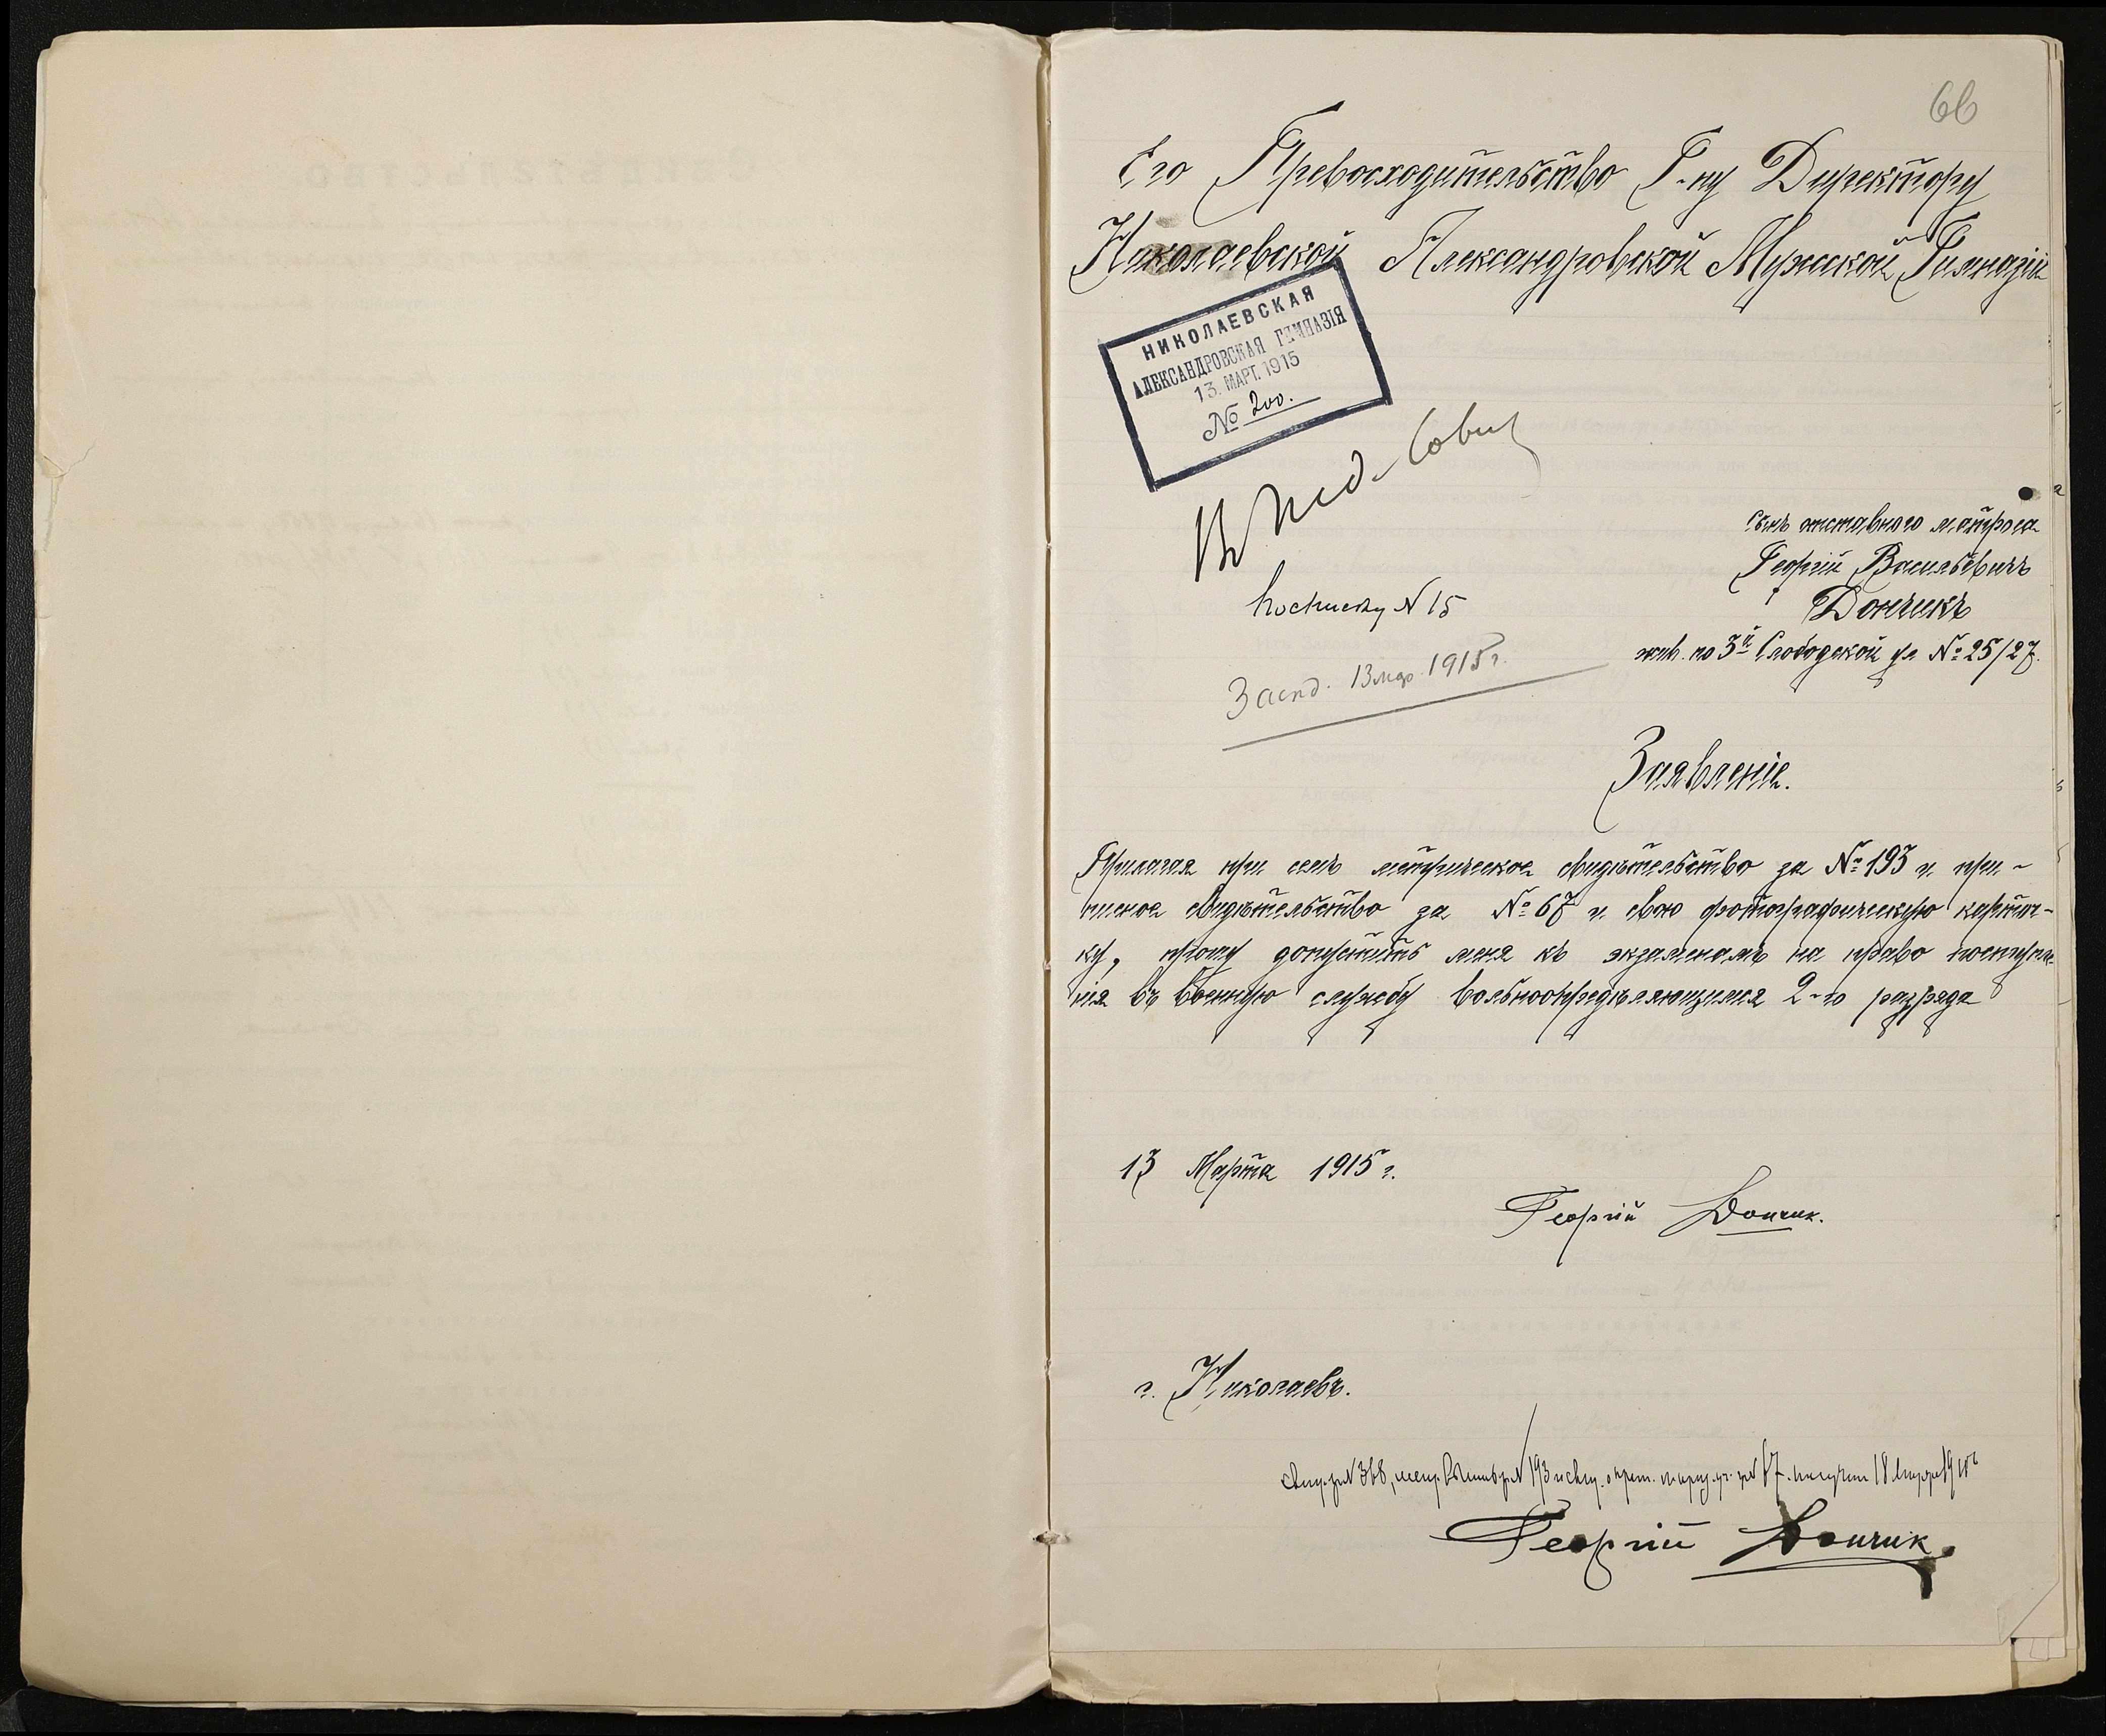 66
Его Превосходительство Г-ну Директору
Николаевской Александровской Мужской Гимназіи
НИКОЛАЕВСКАЯ
АЛЕКСАНДРОВСКАЯ ГИМНАЗІЯ
13. МАРТ. 1915
№ 200.
Въ Пед. Совѣт
сынъ отставного матроса
Георгій Васильевичъ
Дончикъ
жив. по 3й Слободской ул №25/27.
По списку N 15
Засѣд. 13 мар. 1915 г.
Заявленіе.
Прилагая при семъ метрическое свидѣтельство за №193 и при-
писное свидѣтельство за №67 и свою фотографическую карточ-
ку, прошу допустить меня къ экзаменамъ на право поступле-
нія въ военную службу вольноопредѣляющимся 2-го разряда
13 Марта 1915 г.
Георгій Дончик.
г. Николаевъ.
Свид. за N 368, метр. за N 193 и свид. о прип. за N 67 получил 18
Георгій Дончик.